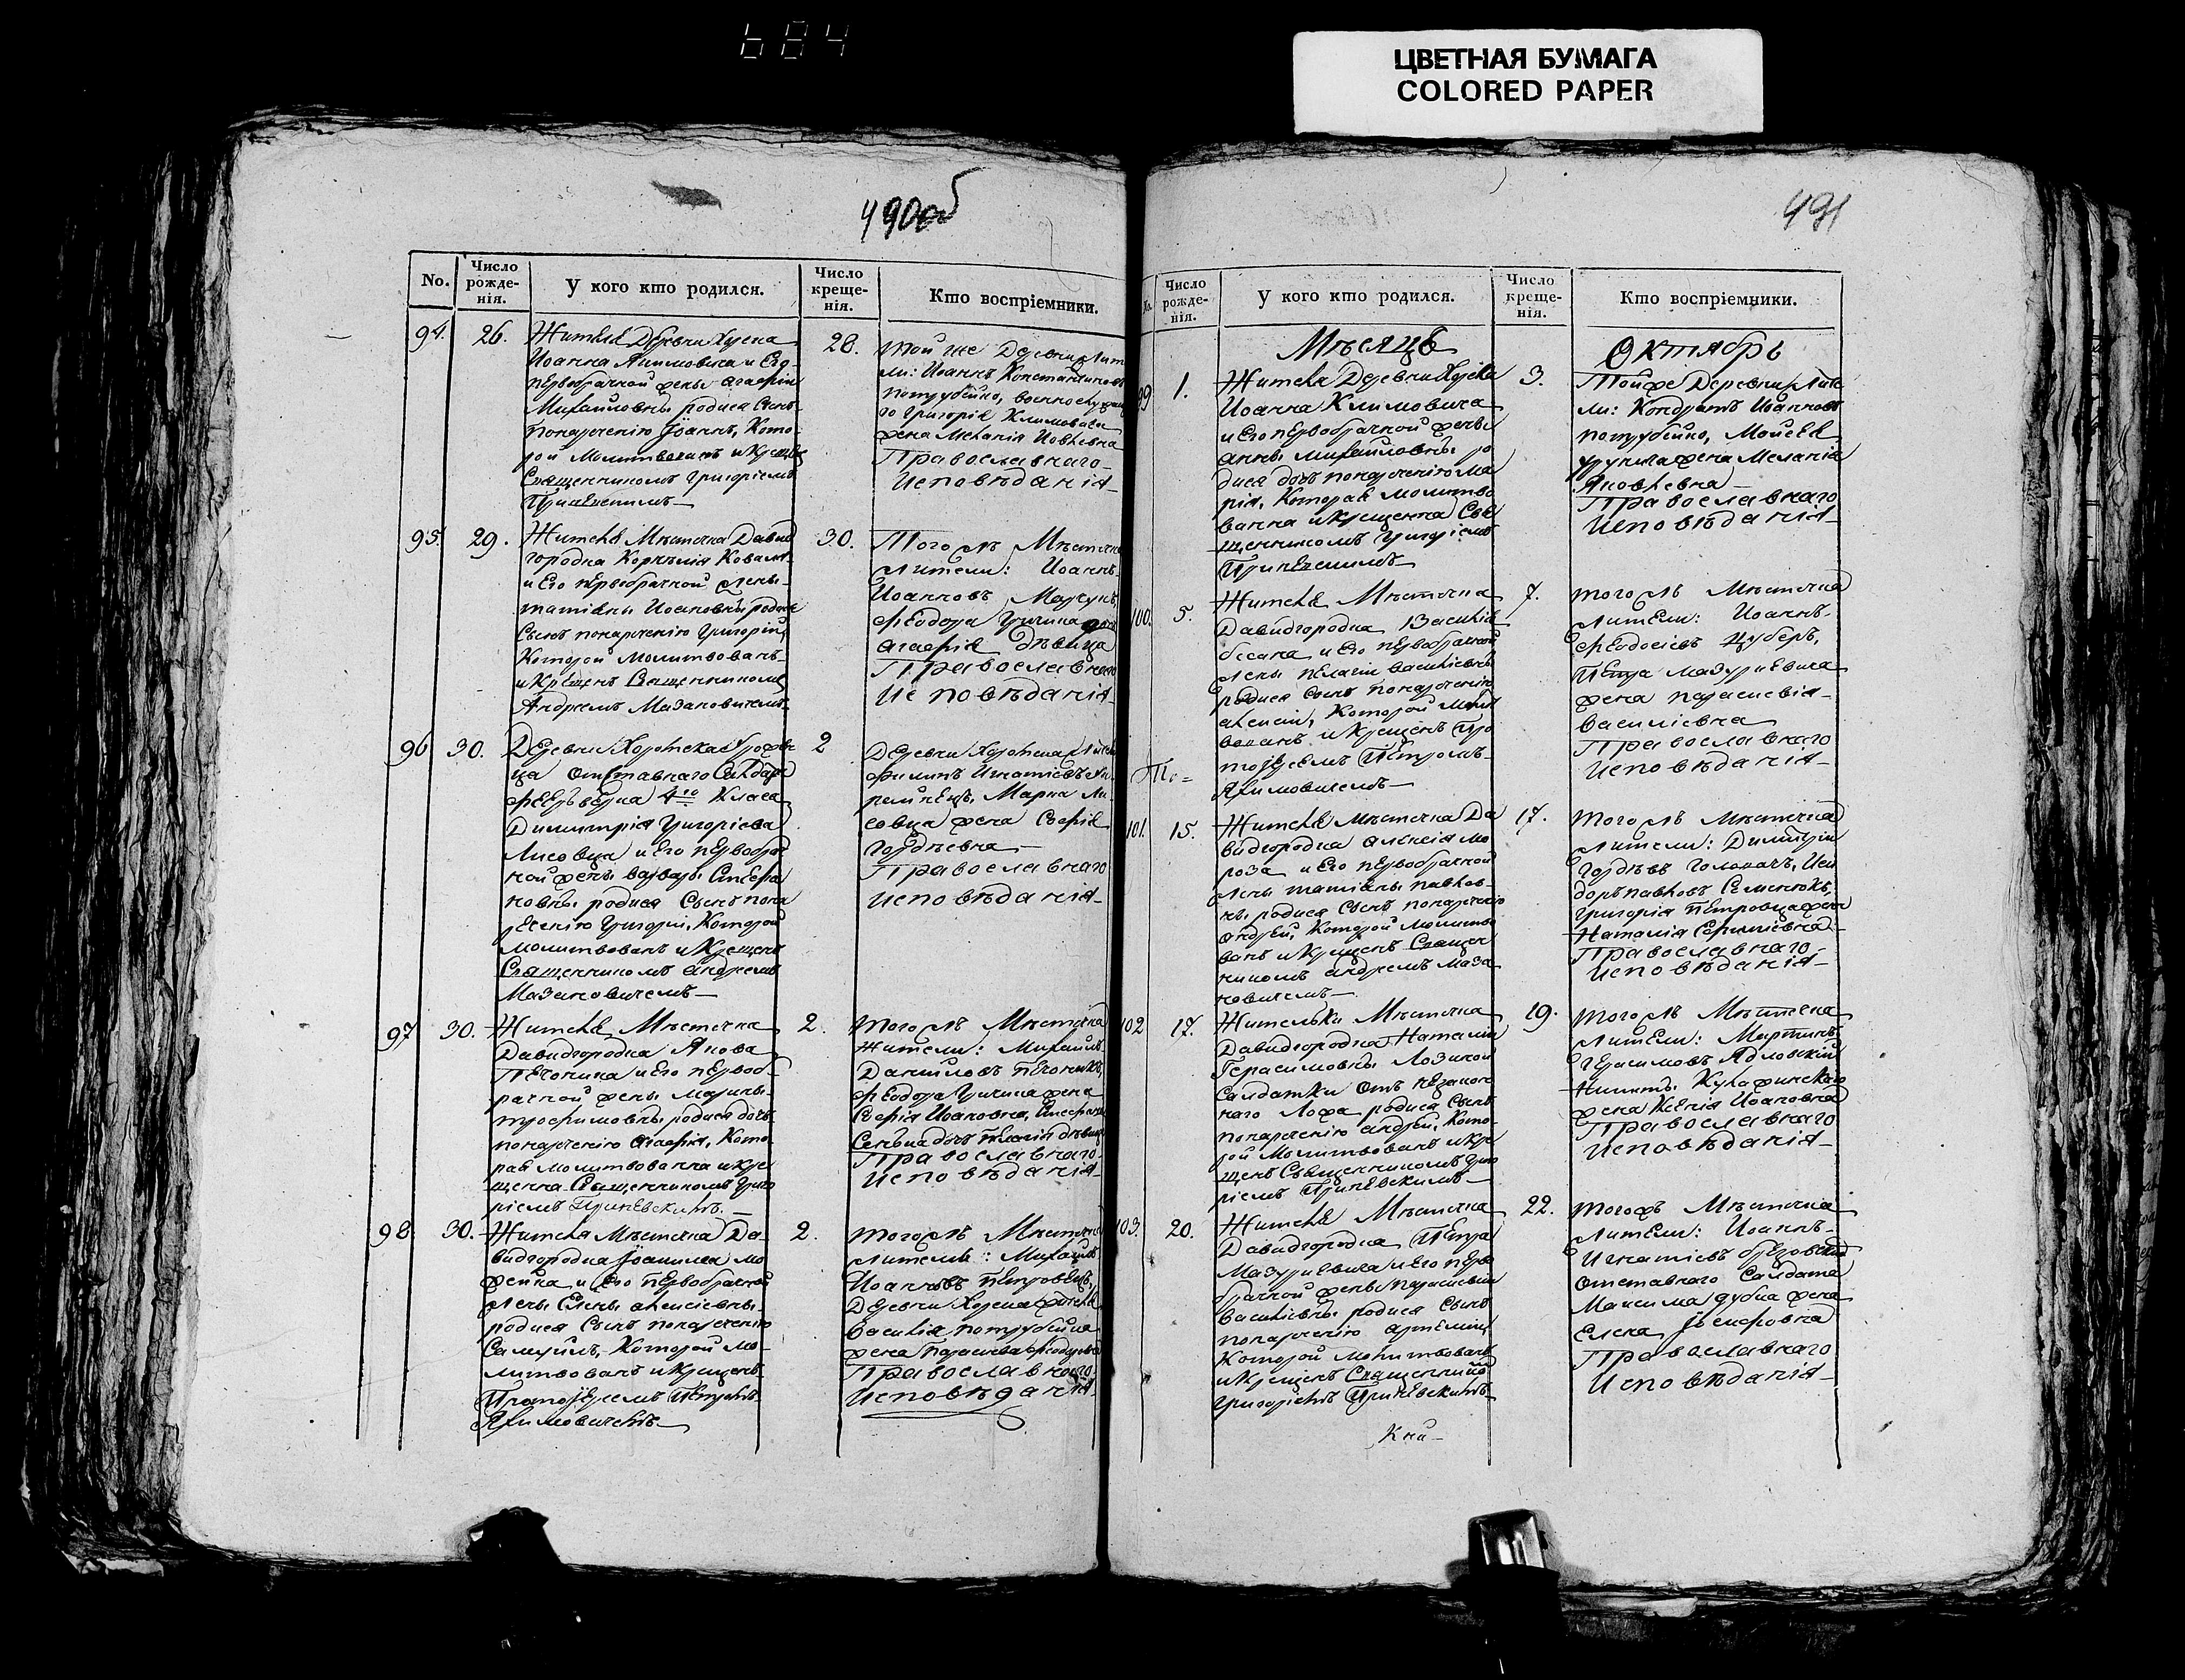 684
ЦВЕТНАЯ БУМАГА
COLORED PAPER
490об
No.
Число рожде-нія.
У кого кто родился.
Число креще-нія.
Кто воспріемники.
94.
26.
Житель Деревни Хорска
Иоанна Климовича и Его
первобрачной жены Агафіи
Михайловны родися Сынъ
понареченію Іоаннъ, Кото-
рой Молитвованъ и Крещенъ
Священникомъ Григоріемъ
28.
той же Деревни Жит
ли: Иоаннъ Константиновъ
потрубейко, военнослужаща
го Григорія Климовича
жена Меланія Иовлевна
Православнаго
Исповѣданія
95.
29.
Жителя Мѣстечка Давид
городка Корнилія Коваля
и Его первобрачной жены
татіаны Иоановны родися
Сынъ понареченію Григорій,
Которой Молитвованъ
и Крещенъ Священникомъ
Андреемъ Мазановичемъ
30.
Того жъ Мѣстечка
жители: Иоаннъ
Иоанновъ Марчукъ,
Феодора Гричина дочь
Агафія дѣвица
Православнаго
Исповѣданія
96
30.
Деревни Хоромска
ца Отставнаго Солдата
Фейервера 4го Класа
Димитрія Григоріева
Лисовца и Его первобрач
ной жены Варвары Стефа
новны родися Сынъ пона
реченію Григорій, Которой
молитвованъ и Крещенъ
Священникомъ Андреемъ
Мазановичемъ
2
Деревни Хоромска Жители
Филипъ Игнатіевъ
Марка Ли
совца жена Софія
Гордѣевна
Православнаго
Исповѣданія
97
30.
Жителя Мѣстечка
Давидгородка Якова
Печоника и Его первоб
рачной жены Марины
трофимовны родися дочь
понареченію Агафія, Кото
рая Молитвованна и Кре
щенна Священникомъ Григо
ріемъ Гриневскимъ
2.
того жъ Мѣстечка
жители: Михаилъ
Даниловъ печоникъ,
Феодора Гричина жена
Софія Иоановна, Стефана
Сенька дочь дѣвица
Православнаго
Исповѣданія
98
30.
Жителя Мѣстечка Да
видгородка Іоакима Мо
жейка и Его первобрачной
жены Елены Алексіевны
родися Сынъ понареченію
Самуилъ, Которой мо-
литвованъ и Крещенъ
Протоіереемъ Петромъ
Якимовичемъ
2.
того жъ Мѣстечка
жители: Михаилъ
Иоанновъ Петровецъ,
Деревни Хорска жителя
Василія потрубейка
жена
Православнаго
Исповѣданія
491
Число рожде-нія.
У кого кто родился.
Число креще-нія.
Кто воспріемники.
Мѣсяцъ
Октябрь
99
1.
Жителя Деревни Хорска
Иоанна Климовича
и Его первобрачной жены
Анны Михайловны ро
дися дочь понареченію Ма
рія, Которая молитво
ванна и Крещенна Свя
щенникомъ Григоріемъ
3.
Той же Деревни Жите
ли: Кондратъ Иоанновъ
потрубейко, Моисея
жена Меланія
Яковлевна
Православнаго
Исповѣданія
100.
5.
Жителя Мѣстечка
Давидгородка Василія
и Его первобрачной
жены Пелагіи Василіевны
родися Сынъ понареченію
Алексій, Которой Молит
вованъ и Крещенъ Про
тоіереемъ Петромъ
Якимовичемъ
7.
того жъ Мѣстечка
жители: Иоаннъ
Феодосіевъ Цуберъ,
Петра Мазуркевича
жена параскевія
Василіевна
Православнаго
Исповѣданія
101.
15.
Жителя Мѣстечка Да
видгородка Алексія Мо
роза и Его первобрачной
жены татіаны павлов-
ны родися Сынъ понареченію
Андрей, Которой Молитво
ванъ и Крещенъ Священ
никомъ Андреемъ Маза
новичемъ
17.
того жъ Мѣстечка
жители: Димитрій
Гордѣевъ Головачъ, Иси
доръ павловъ Семенюкъ,
Григорія Петровца жена
Наталія
Православнаго
Исповѣданія
102
17.
Жительки Мѣстечка
Давидгородка Наталіи
Герасимовны Лозиной
Салдатки Отъ незакон
наго Ложа родися Сынъ
понареченію Андрей, Кото-
рой Молитвованъ и Кре
щенъ Священникомъ Григо
ріемъ Гриневскимъ
19.
того жъ Мѣстечка
жители: Мартинъ
Герасимовъ Ядловскій
Никиты
жена Ксенія Иоановна
Православнаго
Исповѣданія
103.
20.
Жителя Мѣстечка
Давидгородка Петра
Мазуркевича и Его перво
брачной жены параскевіи
Василіевны родися Сынъ
понареченію Артемій,
Которой Молитвованъ
и Крещенъ Священникомъ
Григоріемъ Гриневскимъ
22.
того жъ Мѣстечка
жители: Иоаннъ
Игнатіевъ брезовскій
отставнаго Салдата
Максима дубка жена
Елена Іосифовна
Православнаго
Исповѣданія
Кни-